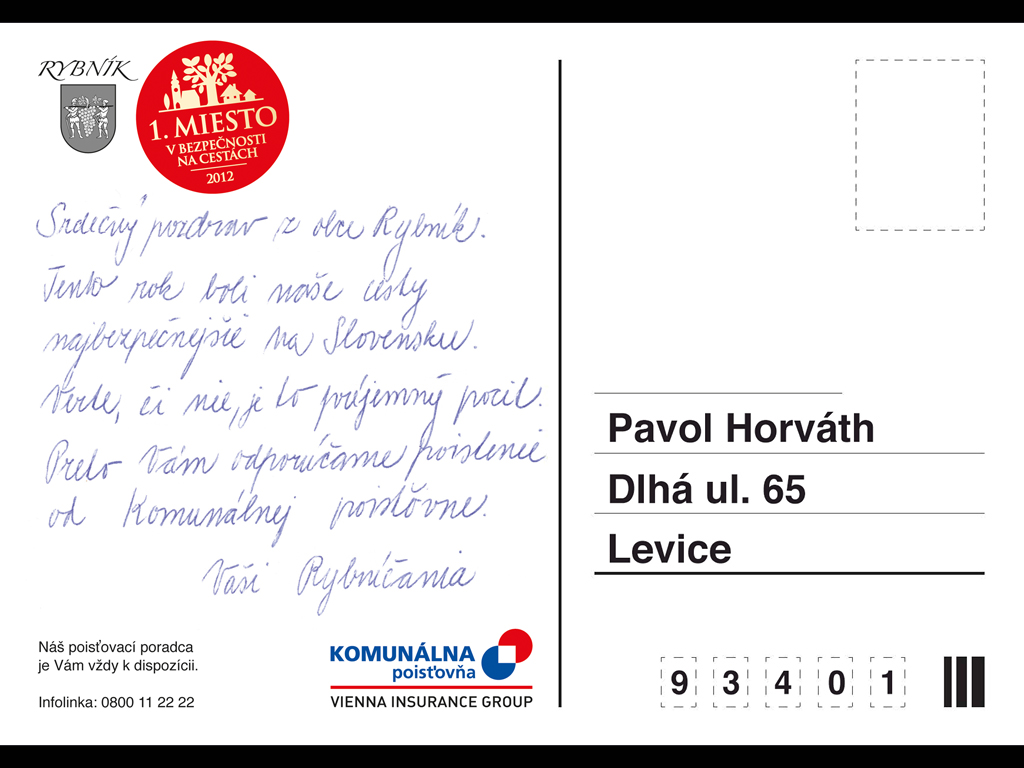 RYBNÍK
1. MIESTO
V BEZPEČNOSTI
NA CESTÁCH
2012
Srdečný pozdrav z obce Rybník.
Tento rok boli naše cesty
najbezpečnejšie na Slovensku.
Verte, či nie, je to príjemný pocit.
Preto Vám odporúčame poistenie
od Komunálnej poisťovne.
Vaši Rybníčania
Náš poisťovací poradca
je Vám vždy k dispozícii.
Infolinka: 0800 11 22 22
KOMUNÁLNA
poisťovňa
VIENNA INSURANCE GROUP
Pavol Horváth
Dlhá ul. 65
Levice
9 3 4 0 1